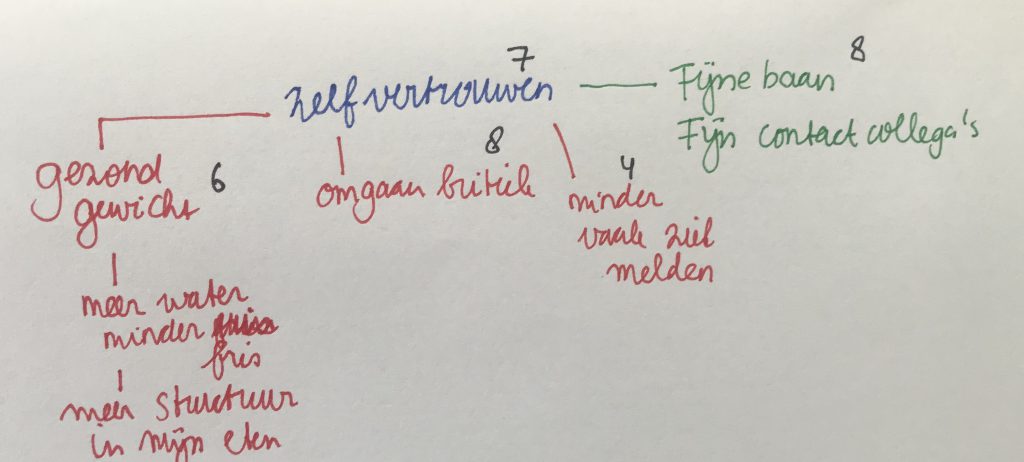 7
zelfvertrouwen
8
Fijne baan
Fijn contact collega's
gezond
gewicht
6
8
omgaan kritiek
4
minder
vaak ziek
melden
meer water
minder
fris
meer structuur
in mijn eten